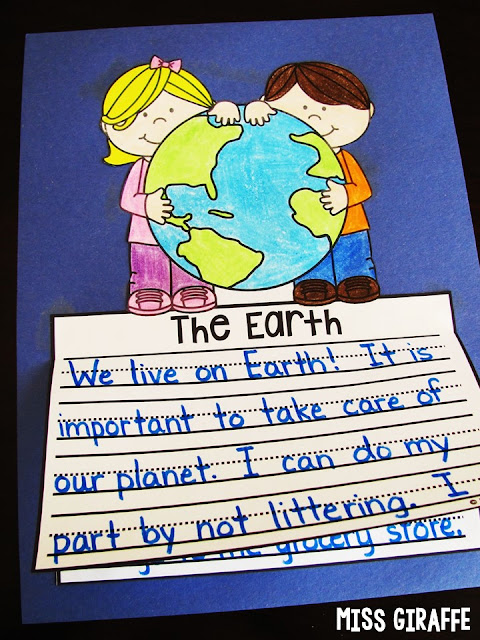 The Earth
We live on Earth! It is
important to take care of
our planet. I can do my
part by not littering. I
the grocery store.
MISS GIRAFFE